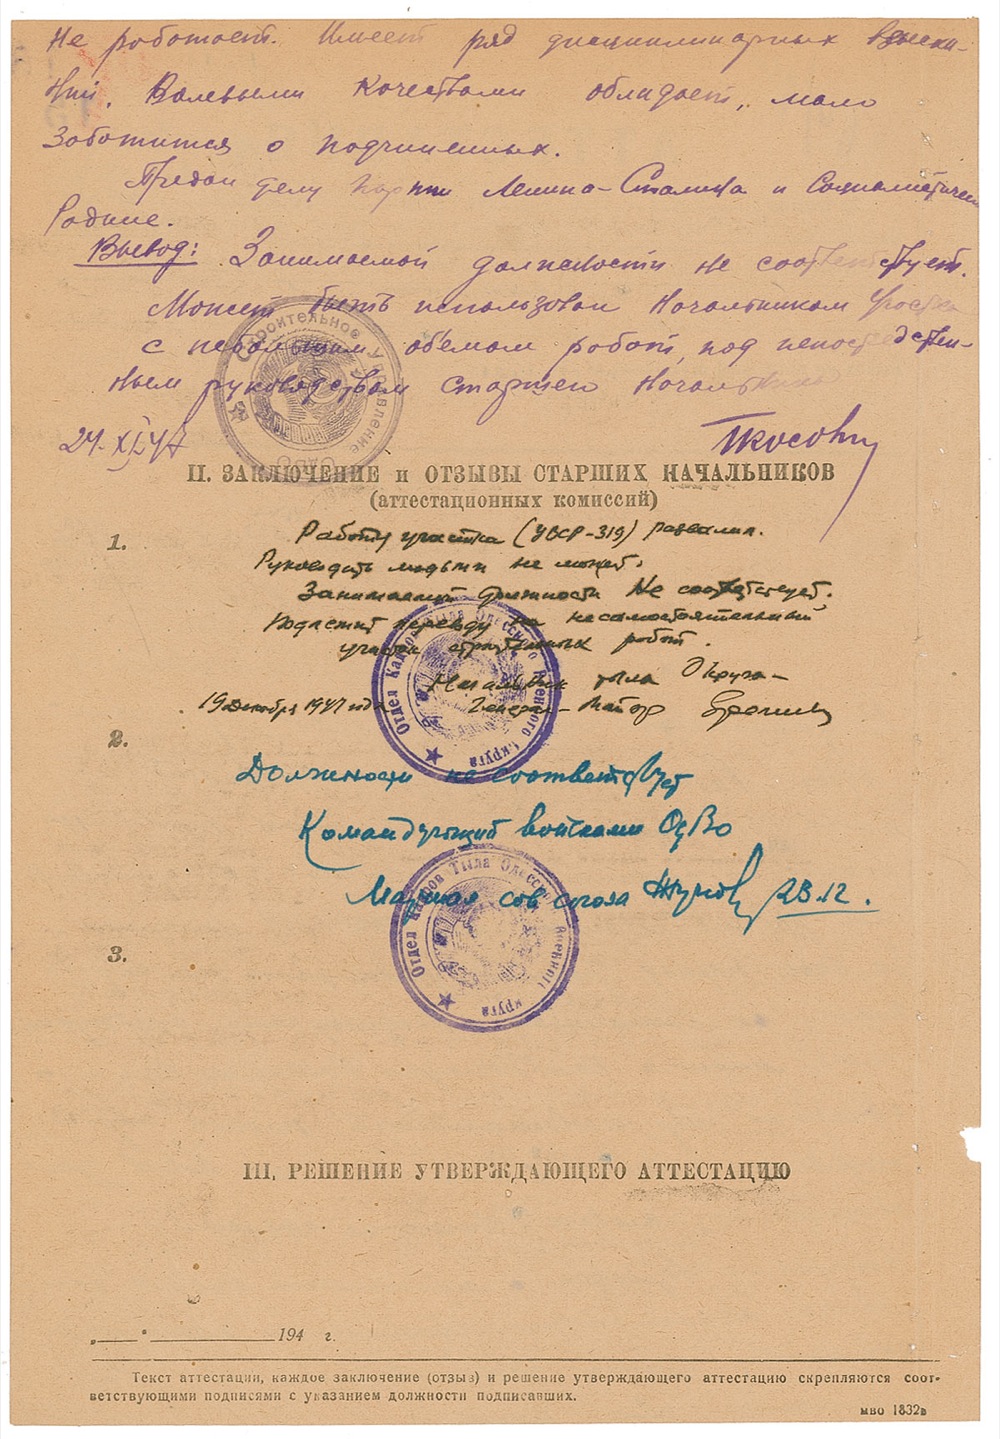 не работает. Имеет ряд дисциплинарных взыска-
ний. Валевыми качествами обладает, мало
заботится о подчиненных.
Предан делу партии Ленина-Сталина и Социалистической
Родине.
Вывод: Занимаемой должности не соответствует.
Может быть использован начальником участка
с небольшим обемом работ, под непосредствен-
ным руководством старшего начальника
24.XI.47
Строительное Управление ОДВО
II. ЗАКЛЮЧЕНИЕ и ОТЗЫВЫ СТАРШИХ НАЧАЛЬНИКОВ
(аттестационных комиссий)
1. Работу участка (УВСР-319) развалил.
Руководить людьми не может.
Занимаемой должности не соответствует.
Подлежит переводу на несамостоятельный
участок строительных работ.
Начальник тыла Округа-
19 декабря 1947 года Генерал-Майор
Отдел Кадров Тыла Одесского Военного Округа
2.
Должности не соответствует
Командующий войсками ОдВО
Маршал сов союза Жуков 23.12.
Отдел Кадров Тыла Одесского Военного Округа
3.
III. РЕШЕНИЕ УТВЕРЖДАЮЩЕГО АТТЕСТАЦИЮ
„ “ 194 г.
Текст аттестации, каждое заключение (отзыв) и решение утверждающего аттестацию скрепляются соот-
ветствующими подписями с указанием должности подписавших.
МВО 1832в